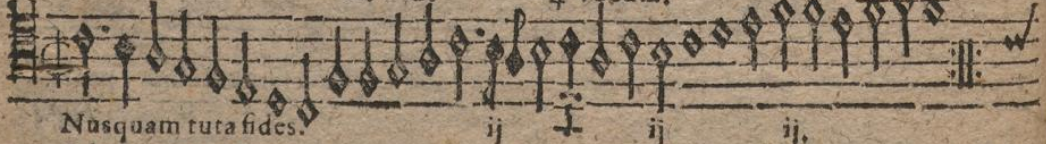 Nusquam tuta fides. ij ij ij.